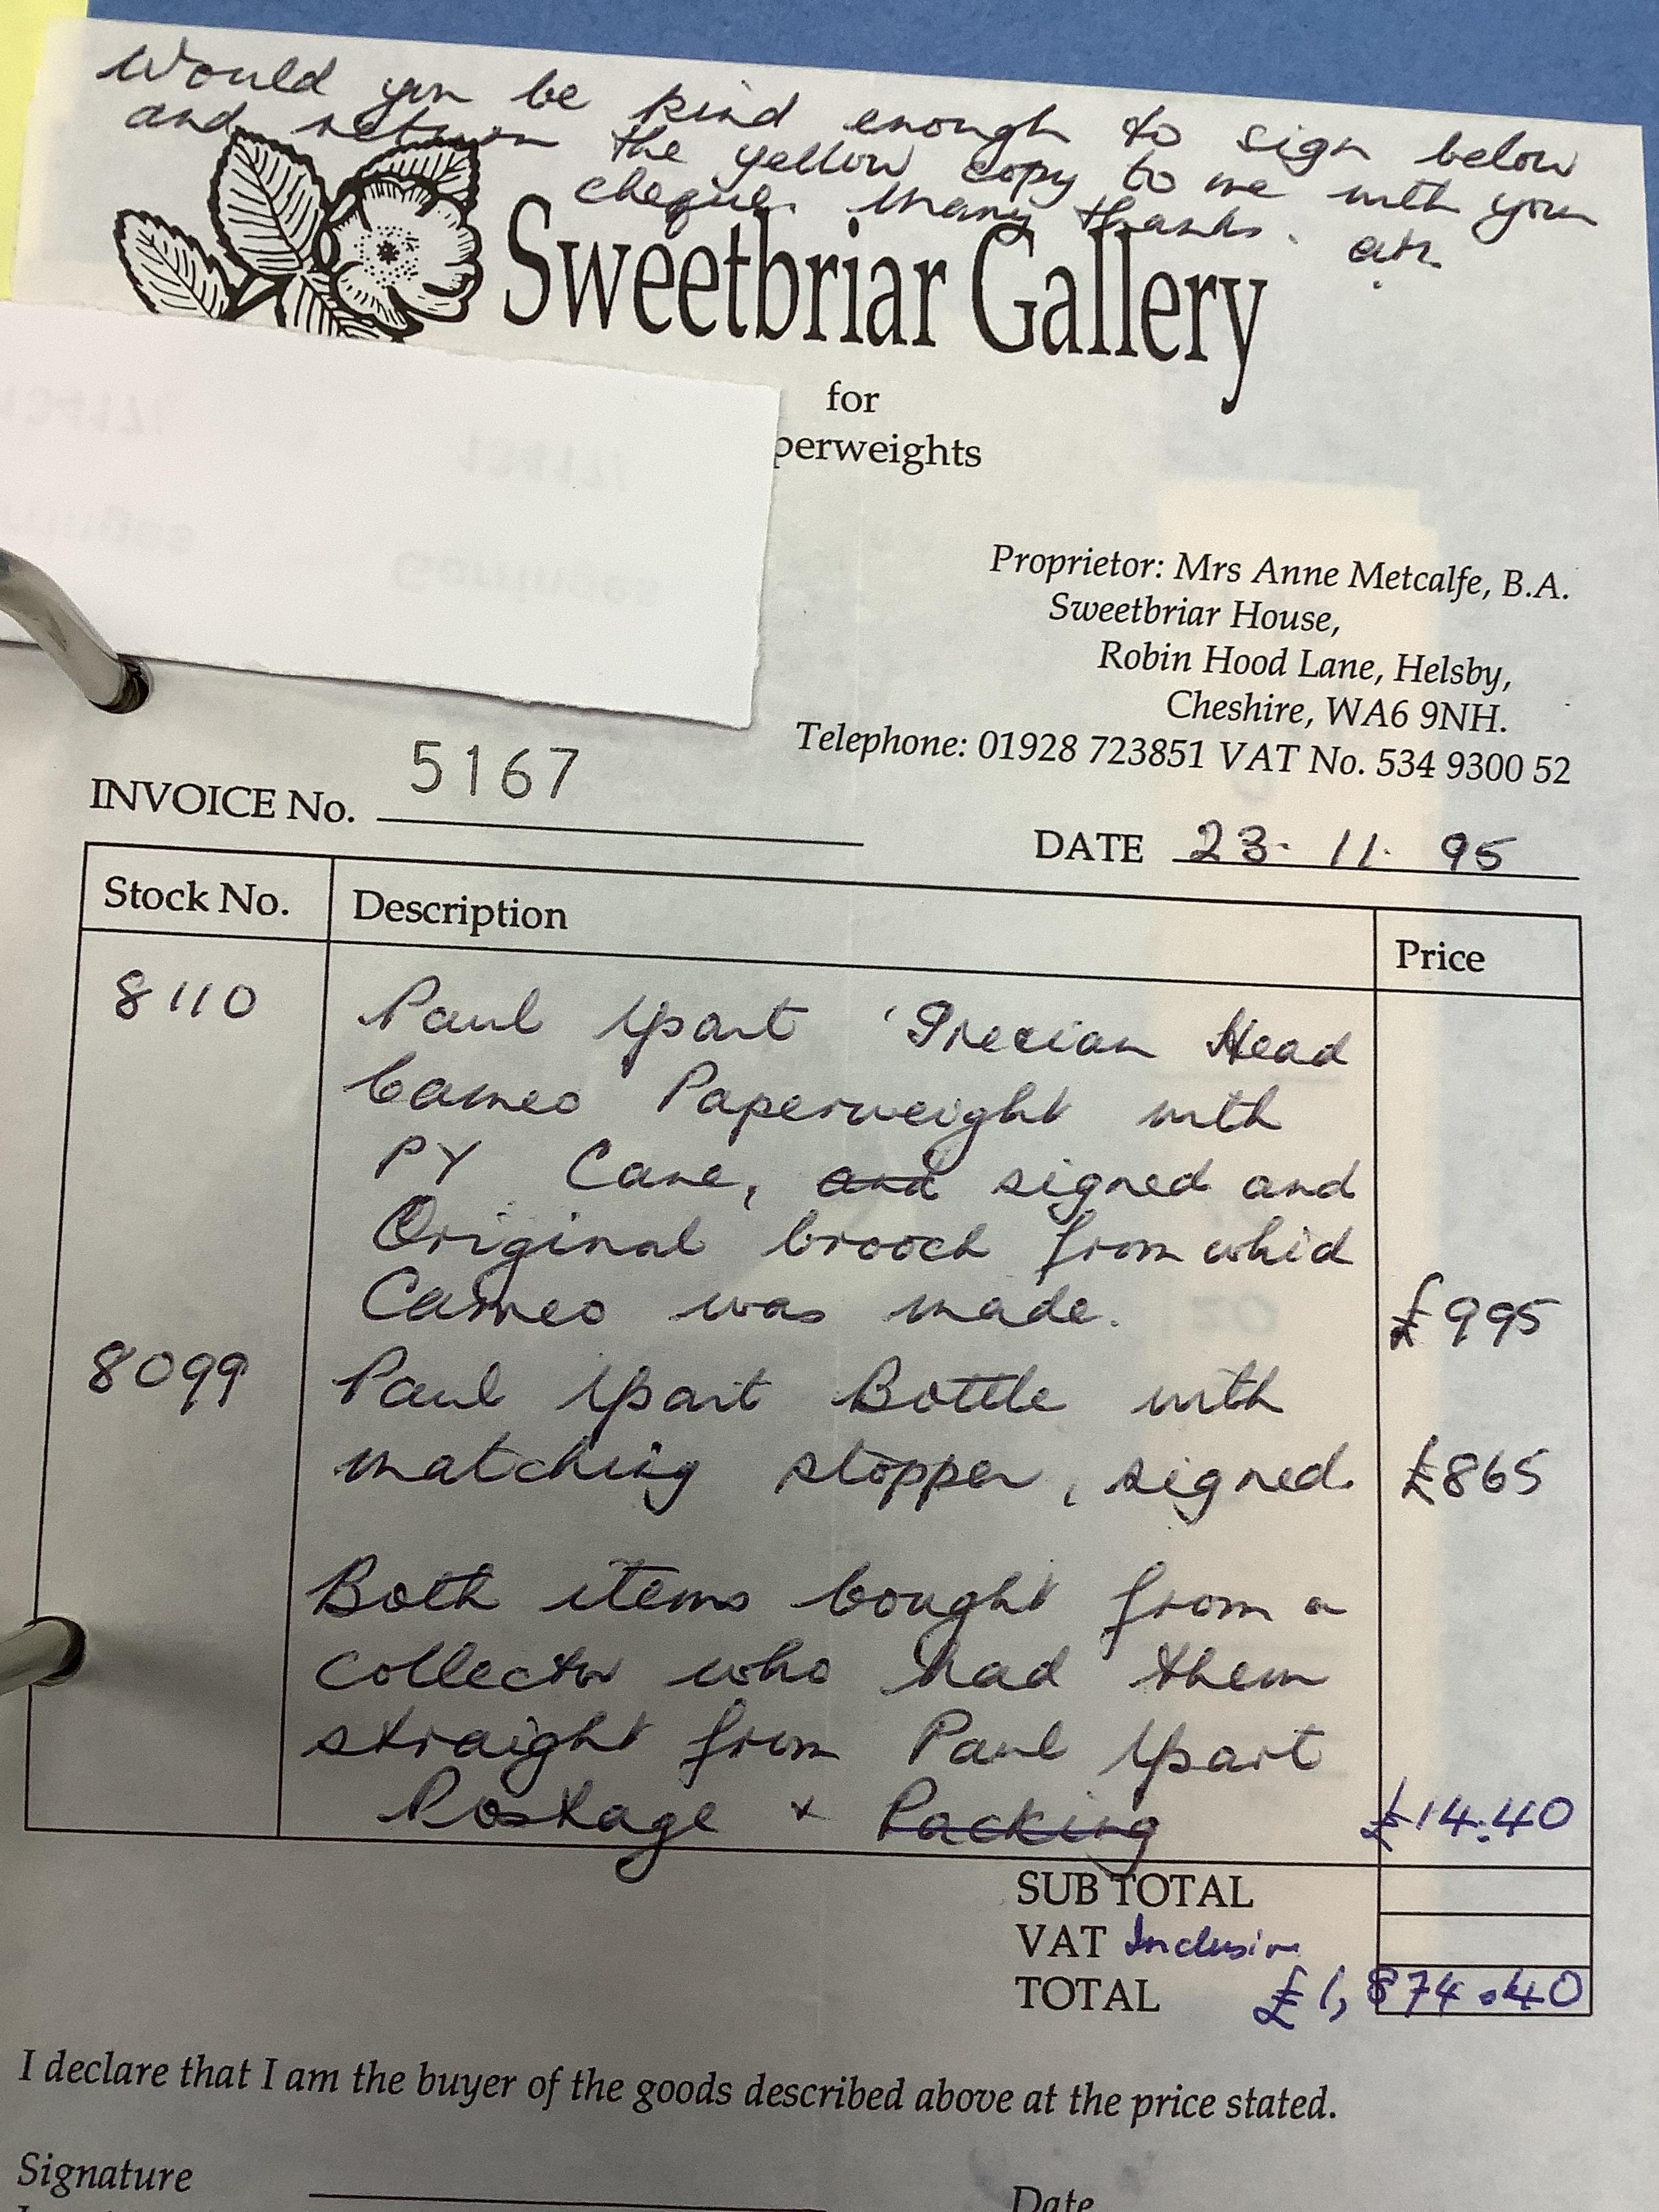 Would you be kind enough to sign below
and return the yellow copy to me with your
cheque. Many thanks.
Sweetbriar Gallery
for
perweights
Proprietor: Mrs Anne Metcalfe, B.A.
Sweetbriar House,
Robin Hood Lane, Helsby,
Cheshire, WA6 9NH.
Telephone: 01928 723851 VAT No. 534 9300 52
INVOICE No. 5167
DATE 23. 11. 95
Stock No. Description Price
8110 Paul Ysart 'Grecian Head
Cameo Paperweight with
PY Cane, and signed and
Original brooch from which
Cameo was made. £995
8099 Paul Ysart Bottle with
matching stopper, signed. £865
Both items bought from a
collector who had them
straight from Paul Ysart
Postage + Packing £14.40
SUB TOTAL
VAT Inclusive
TOTAL £1,874.40
I declare that I am the buyer of the goods described above at the price stated.
Signature
Date